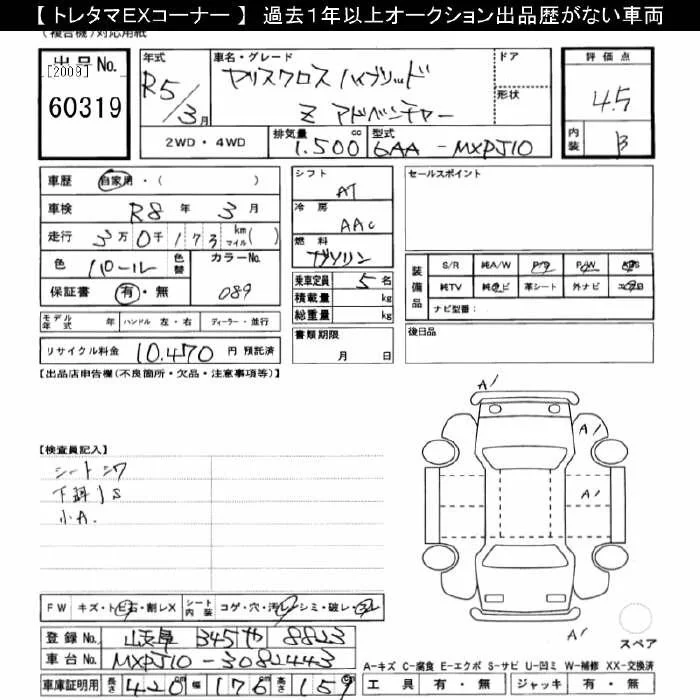 【 トレタマEXコーナー 】 過去1年以上オークション出品歴がない車両
(複合機)対応用紙
出品No.
[2009]
60319
年式
R5/3月
車名・グレード
ヤリスクロス ハイブリッド
Z アドベンチャー
ドア
形状
2WD・4WD
排気量
1.500 cc
型式
6AA - MXPJ10
評価点
4.5
内装
B
車歴 自家用・( )
車検 R8 年 3 月
走行 3 万 0 千 1 7 3 km マイル( )
色 パール 色替
カラーNo.
089
保証書 有・無
シフト
AT
冷房
AAC
燃料
ガソリン
乗車定員 5 名
積載量 kg
総重量 kg
書類期限
月 日
セールスポイント
装備品
S/R 純A/W P/S P/W ABS
純TV 純ナビ 革シート 外ナビ
ナビ型番:
後日品
モデル年式 年 ハンドル 左・右 ディーラー・並行
リサイクル料金 10.470 円 預託済
【出品店申告欄(不良箇所・欠品・注意事項等)】
【検査員記入】
シートシワ
下廻りS
小A.
A1
A1
A1
A1
A1
FW キズ・トビ石・割レX
シート内装 コゲ・穴・汚レ・シミ・破レ・スレ
登録No. 岐阜 345 や 8823
車台No. MXPJ10-3082443
車庫証明用 長さ 420 cm 幅 176 cm 高さ 159 cm
スペア
A-キズ C-腐食 E-エクボ S-サビ U-凹ミ W-補修 XX-交換済
工具 有・無 ジャッキ 有・無